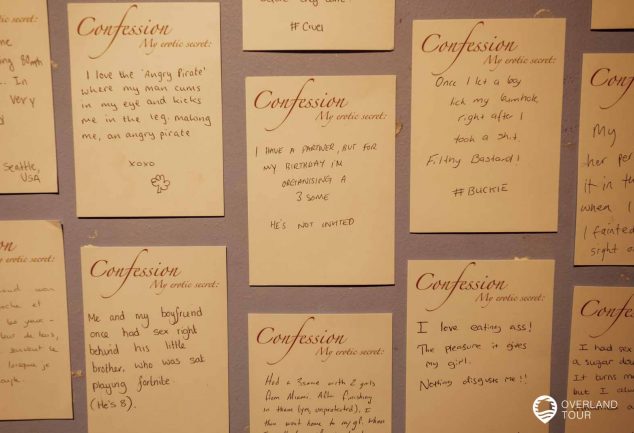 me
ing 80mph
In
very
Seattle,
USA
Confession
My erotic secret:
I love the 'Angry Pirate'
where my man cums
in my eye and kicks
me in the leg, making
me, an angry pirate
xoxo
Confession
My erotic secret:
I HAVE A PARTNER, BUT FOR
MY BIRTHDAY I'M
ORGANISING A
3 SOME
HE'S NOT INVITED
Confession
My erotic secret:
Once I let a boy
lick my bumhole,
right after I
took a shit.
Filthy Bastard!
#BUCKIE
Con
My
her per
it in t
when I
I fainted
sight o
fession
y erotic secret:
Confession
My erotic secret:
Me and my boyfriend
once had sex right
behind his little
brother, who was sat
playing fortnite
(He's 8).
Confession
My erotic secret:
Had a 3some with 2 girls
from Miami. After finishing
in them (yes, unprotected), I
then went home to my gf. When
Confession
My erotic secret:
I love eating ass!
The pleasure it gives
my girl.
Nothing disgusts me!!
Confess
My
I had sex
a sugar da
It turns me
but I alw
OVERLAND
TOUR